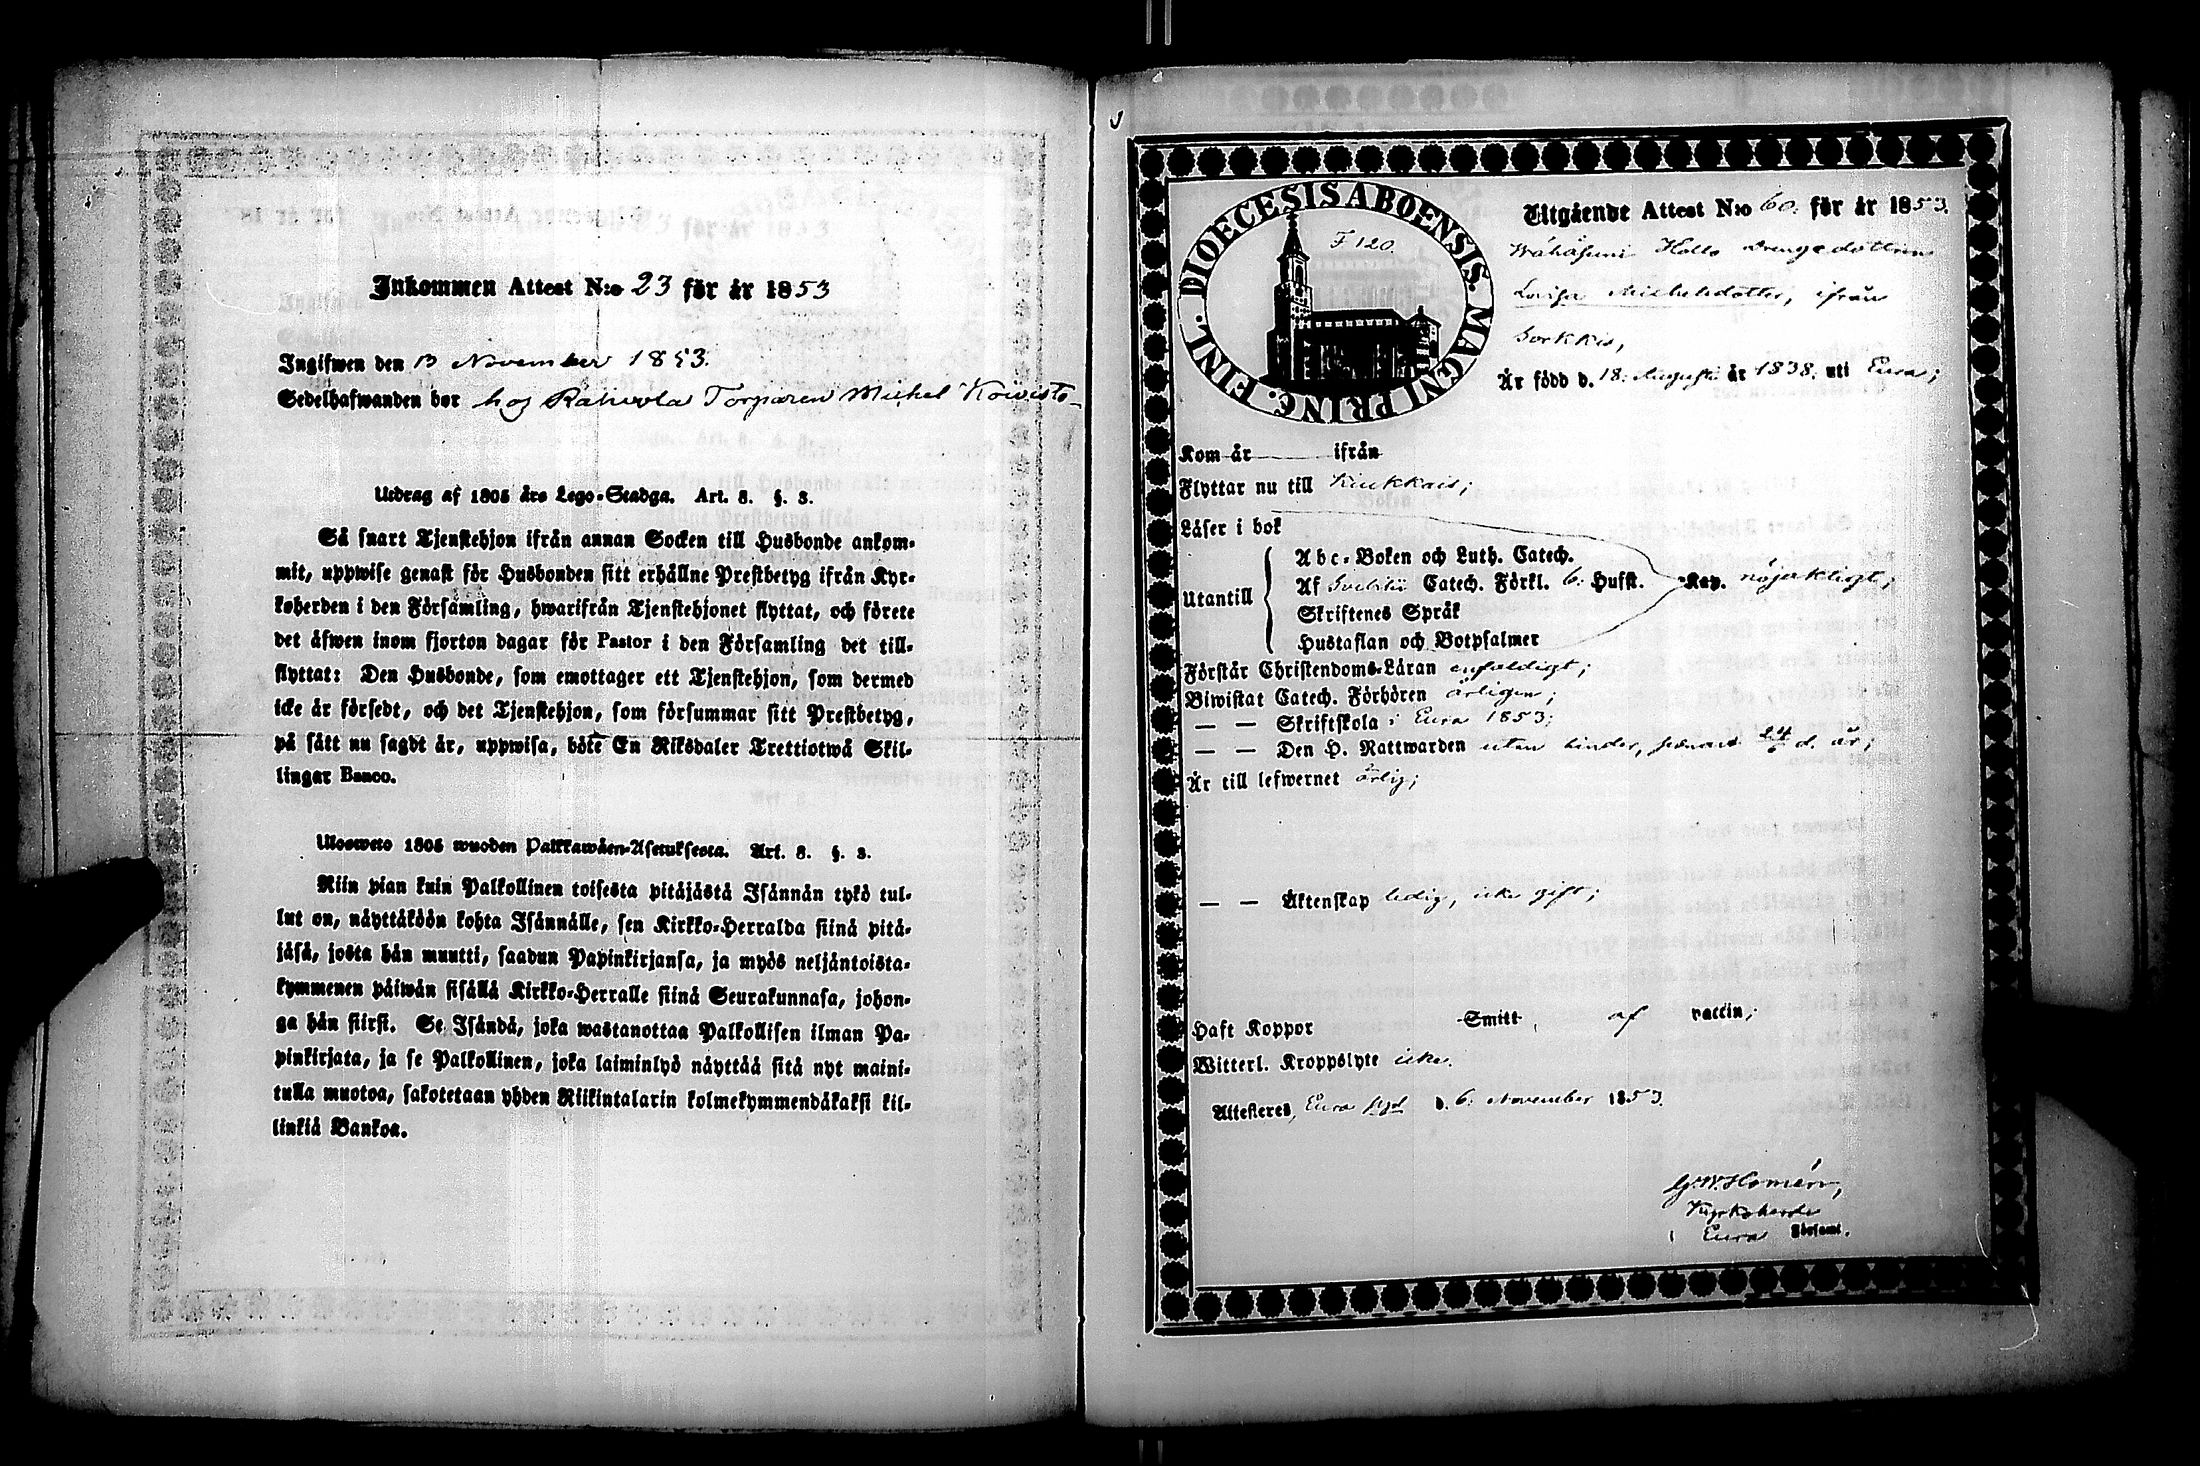 Inkommen Attest N:o 23 för år 1853
Ingifwen den 13 November 1853.
Sedelhafwanden bor hos Rahvola Torparen Michel Koivisto
Utdrag af 1805 års Lego-Stadga. Art. 8. §. 3.
Så snart Tjenstehjon ifrån annan Socken till Husbonde ankom-
mit, uppwise genast för Husbonden sitt erhållne Prestbetyg ifrån Kyr-
koherden i den Församling, hwarifrån Tjenstehjonet flyttat, och förete
det äfwen inom fjorton dagar för Pastor i den Församling det till-
flyttat: Den Husbonde, som emottager ett Tjenstehjon, som dermed
icke är försedt, och det Tjenstehjon, som försummar sitt Prestbetyg,
på sätt nu sagdt är, uppwisa, böte En Riksdaler Trettiotwå Skil-
lingar Banco.
Ulosweto 1805 wuoden Palkkawäen-Asetuksesta. Art. 8. §. 3.
Niin pian kuin Palkollinen toisesta pitäjästä Isännän tykö tul-
lut on, näyttäköön kohta Isännälle, sen Kirkko-Herralda siinä pitä-
jäsä, josta hän muutti, saadun Papinkirjansa, ja myös neljäntoista-
kymmenen päiwän sisällä Kirkko-Herralle siinä Seurakunnasa, johon-
ga hän siirsi. Se Isändä, joka wastanottaa Palkollisen ilman Pa-
pinkirjata, ja se Palkollinen, joka laiminlyö näyttää sitä nyt maini-
tulla muotoa, sakotetaan yhden Riikintalarin kolmekymmendäkaksi kil-
linkiä Bankoa.
DIOECESIS ABOENSIS. MAGNI PRINC. FINL.
F 120.
Utgående Attest N:o 60. för år 1853.
Drengedottren
Lovisa Michelsdotter, ifrån
Sorkkis,
Är född d. 18. Augusti år 1838. uti Eura;
Kom år ifrån
Flyttar nu till Kiukkais;
Läser i bok
Utantill
Abc-Boken och Luth. Catech.
Af Svebilii Catech. Förkl. 6. Hufst. Kap. nöjaktigt;
Skriftenes Språk
Hustaflan och Botpsalmer
Förstår Christendoms-Läran enfaldigt;
Biwistat Catech. Förhören årligen;
— — Skriftskola i Eura 1853;
— — Den H. Nattwarden utan hinder, senast 24 d. år;
Är till lefwernet ärlig;
— — Äktenskap ledig, icke gift;
Haft Koppor Smitt af vaccin;
Witterl. Kroppslyte icke.
Attesteres, Eura d. 6. November 1853.
G. W. Homén,
Kyrkoherde
i Eura FörSaml.